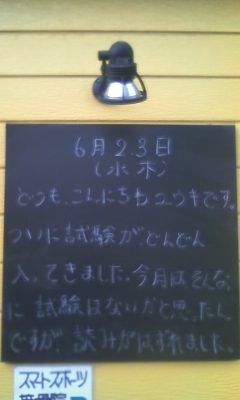 6月23日
(水木)
どうも、こんにちわユウキです。
ついに試験が、どんどん
入ってきました。今月はそんな
に試験はないかと思ったん
ですが、読みがはずれました。
スマートスポーツ
整骨院